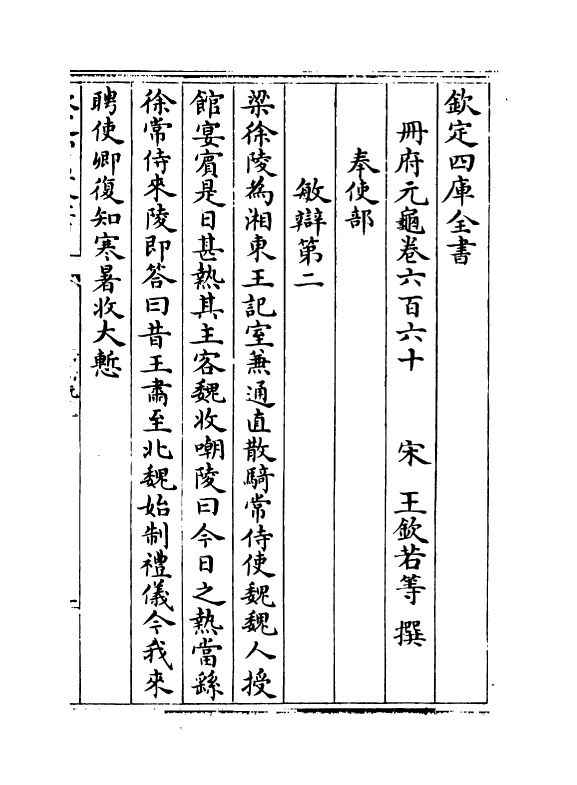 欽定四庫全書
冊府元龜卷六百六十　宋　王欽若等　撰
奉使部
敏辯第二
梁徐陵為湘東王記室兼通直散騎常侍使魏魏人授
館宴賔是日甚熱其主客魏收嘲陵曰今日之熱當繇
徐常侍來陵即答曰昔王肅至北魏始制禮儀今我來
聘使卿復知寒暑收大慙